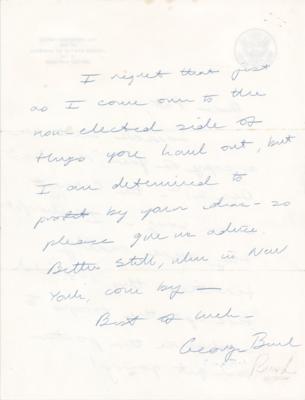 I regret that just
as I come over to the
non-elected side of
things you haul out, but
I am determined to
profit by your – so
please give us advice.
Better still, when in New
York, come by –
Best of luck –
George Bush
Bush